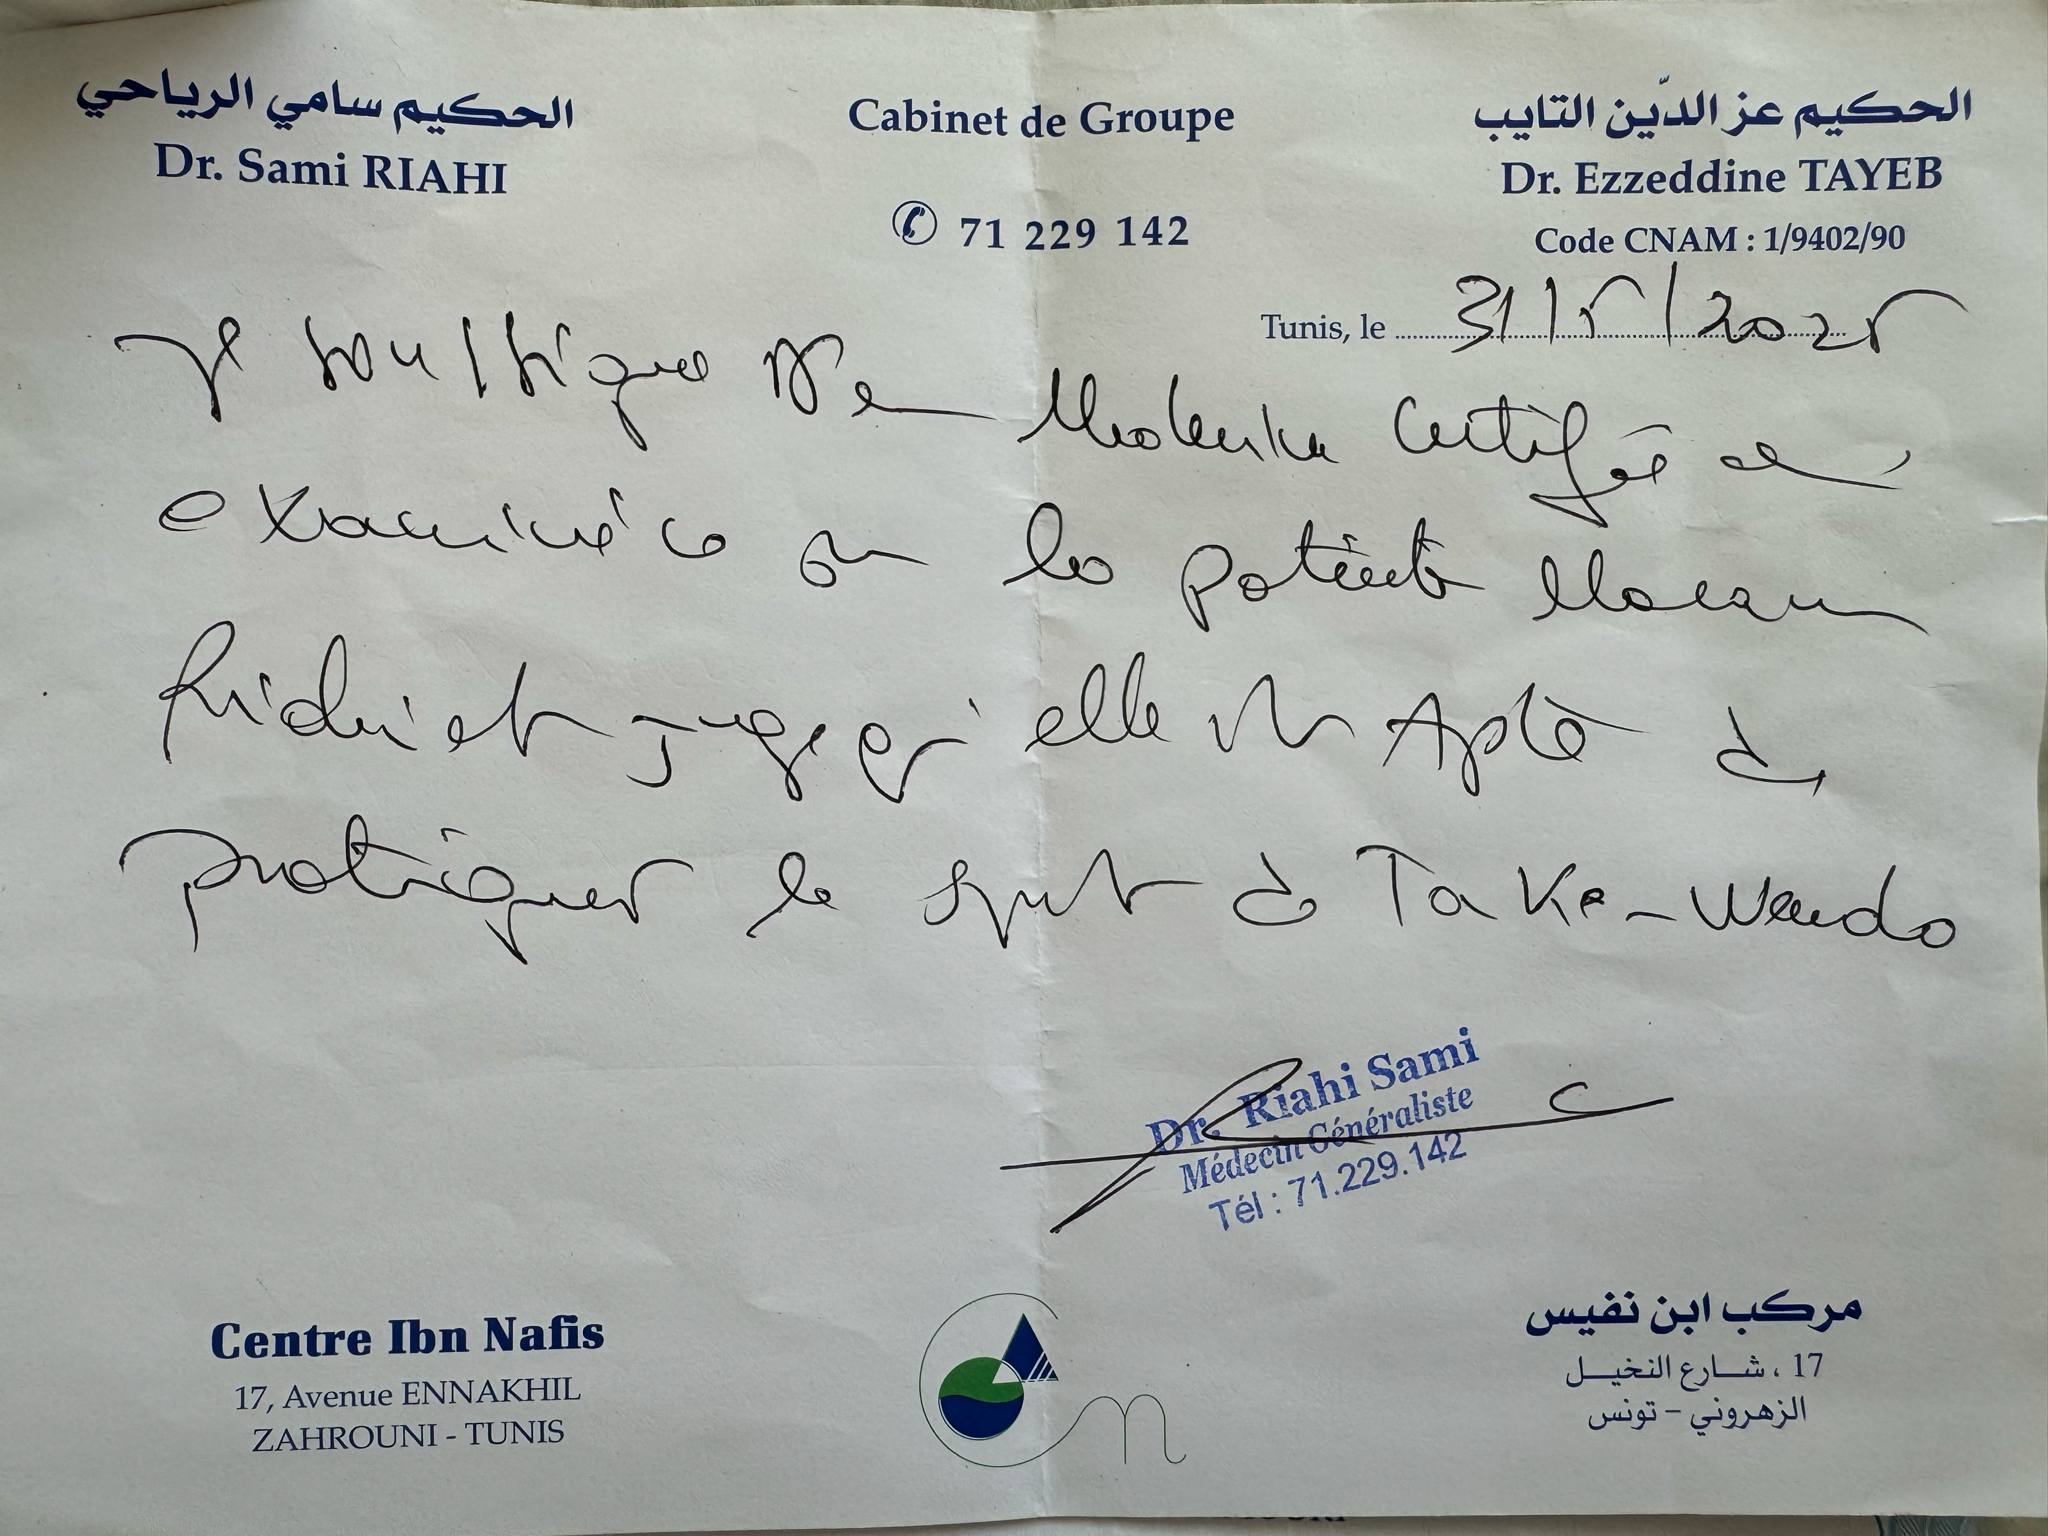 الحكيم سامي الرياحي
Dr. Sami RIAHI
Cabinet de Groupe
71 229 142
الحكيم عز الدّين التايب
Dr. Ezzeddine TAYEB
Code CNAM : 1/9402/90
Tunis, le 31/5/2025
Je soussigné Dr certifie
examiné ce jour la patiente
et juge qu'elle est Apte à
pratiquer le sport de Take-Wendo
Dr. Riahi Sami
Médecin Généraliste
Tél : 71.229.142
Centre Ibn Nafis
17, Avenue ENNAKHIL
ZAHROUNI - TUNIS
مركب ابن نفيس
17 ، شارع النخيل
الزهروني - تونس